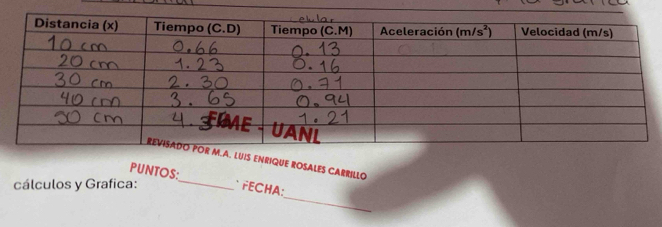 la grafica
Distancia (x) Tiempo (C.D) Tiempo (C.M) Aceleración (m/s²) Velocidad (m/s)
10 cm 0.66 0.13
20 cm 1.23 0.16
30 cm 2.30 0.71
40 cm 3.65 0.94
50 cm 4. 1.21
FIME - UANL
REVISADO POR M.A. LUIS ENRIQUE ROSALES CARRILLO
PUNTOS:________ FECHA:________
cálculos y Grafica: